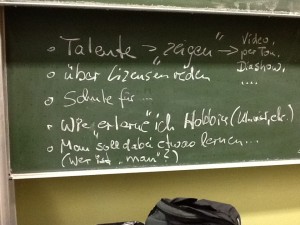 • Talente → "zeigen" → Video,
per Ton,
Diashow,
....
• über Lizensen reden
• Schule für ...
• Wie "erlerne" ich Hobbies (Uni, etc.)
• Man soll dabei etwas lernen...
(Wer ist "man"?)